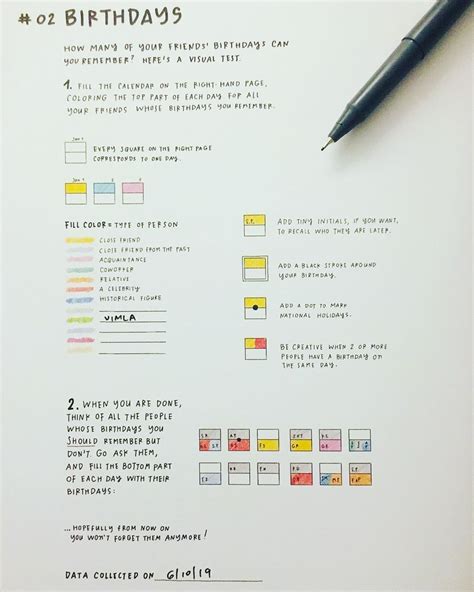 #02 BIRTHDAYS
HOW MANY OF YOUR FRIENDS' BIRTHDAYS CAN
YOU REMEMBER? HERE'S A VISUAL TEST.
1. FILL THE CALENDAR ON THE RIGHT-HAND PAGE,
COLORING THE TOP PART OF EACH DAY FOR ALL
YOUR FRIENDS WHOSE BIRTHDAYS YOU REMEMBER.
EVERY SQUARE ON THE RIGHT PAGE
CORRESPONDS TO ONE DAY.
FILL COLOR = TYPE OF PERSON
CLOSE FRIEND
CLOSE FRIEND FROM THE PAST
ACQUAINTANCE
COWORKER
RELATIVE
A CELEBRITY
HISTORICAL FIGURE
VIMLA
ADD TINY INITIALS, IF YOU WANT,
TO RECALL WHO THEY ARE LATER.
ADD A BLACK STROKE AROUND
YOUR BIRTHDAY.
ADD A DOT TO MARK
NATIONAL HOLIDAYS.
BE CREATIVE WHEN 2 OR MORE
PEOPLE HAVE A BIRTHDAY ON
THE SAME DAY.
2. WHEN YOU ARE DONE,
THINK OF ALL THE PEOPLE
WHOSE BIRTHDAYS YOU
SHOULD REMEMBER BUT
DON'T. GO ASK THEM,
AND FILL THE BOTTOM PART
OF EACH DAY WITH THEIR
BIRTHDAYS:
...HOPEFULLY FROM NOW ON
YOU WON'T FORGET THEM ANYMORE!
DATA COLLECTED ON 6/10/19